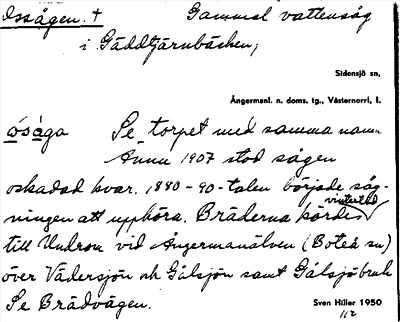 Ossågen. + Gammal vattensåg
i Gäddtjärnbäcken,
Sidensjö sn,
Ångermanl. n. doms. tg., Västernorrl. l.
Se torpet med samma namn
Ännu 1907 stod sågen
oskadad kvar. 1880-90-talen började såg-
ningen att upphöra. Bräderna kördes vintertid
till Undrom vid Ångermanälven (Boteå sn)
över Vädersjön och Gålsjön samt Gålsjöbruk
Se Brädvägen.
Sven Hiller 1950
112